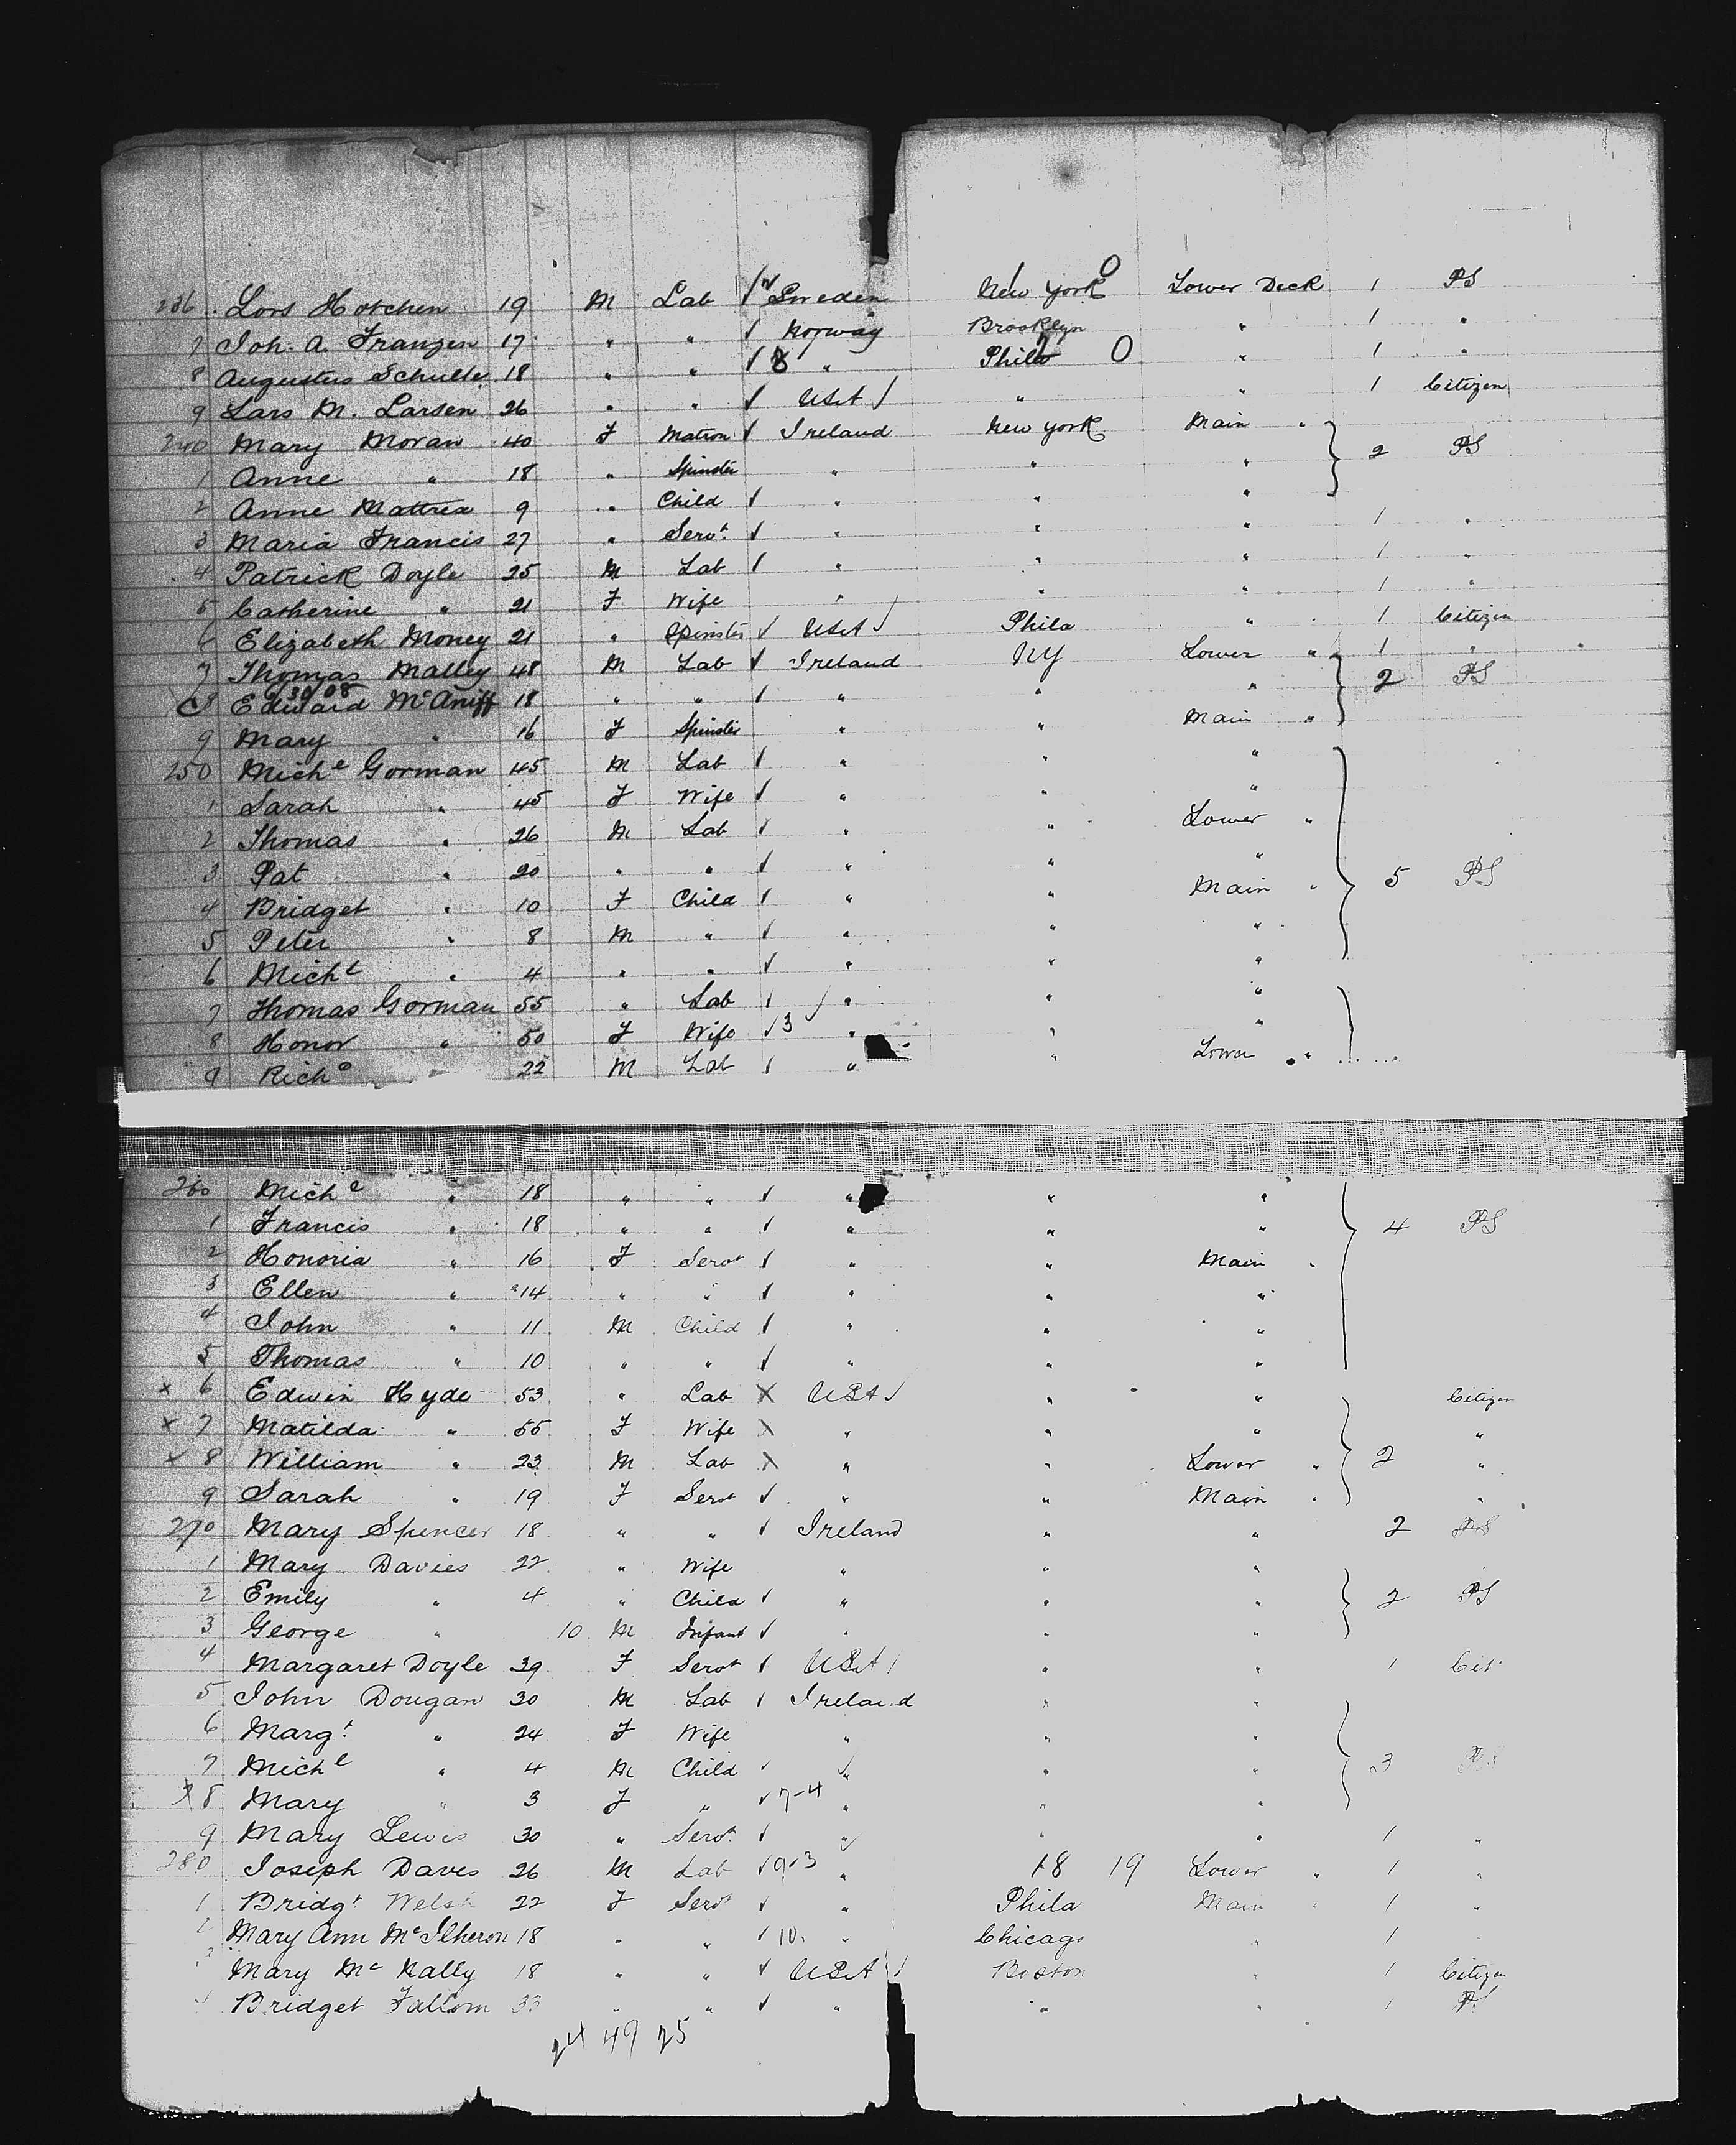 236 Lors Hotchen 19 M Lab Sweden New York 0 Lower Deck 1 PS
7 Joh. A. Franzen 17 " " Norway Brooklyn " 1 "
8 Augustus Schulte 18 " " 8 " Phila 0 " 1 "
9 Lars M. Larsen 26 " " USA " " 1 Citizen
240 Mary Moran 40 F Matron Ireland New York Main "
1 Anne " 18 " Spinster " " " 2 PS
2 Anne Mattrea 9 " Child " " "
3 Maria Francis 27 " Servt " " " 1 "
4 Patrick Doyle 25 M Lab " " " 1 "
5 Catherine " 21 F Wife " " " 1 "
6 Elizabeth Money 21 " Spinster USA Phila " 1 Citizen
7 Thomas Malley 48 M Lab Ireland NY Lower " 1 "
30 08
8 Edward McAniff 18 " " " " " 2 PS
9 Mary " 16 F Spinster " " Main "
250 Michl Gorman 45 M Lab " " "
1 Sarah " 45 F Wife " " "
2 Thomas " 26 M Lab " " Lower "
3 Pat " 20 " " " " "
4 Bridget " 10 F Child " " Main " 5 PS
5 Peter " 8 M " " " "
6 Michl " 4 " " " " "
7 Thomas Gorman 55 " Lab " " "
8 Honor " 50 F Wife 3 " " "
9 Richd 22 M Lab " " Lower "
260 Michl " 18 " " " " "
1 Francis " 18 " " " " " 4 PS
2 Honoria " 16 F Servt " " Main "
3 Ellen " 14 " " " " "
4 John " 11 M Child " " "
5 Thomas " 10 " " " " "
x 6 Edwin Hyde 53 " Lab X USA " " Citizen
x 7 Matilda " 55 F Wife X " " " "
x 8 William " 23 M Lab X " " Lower " 2 "
9 Sarah " 19 F Servt " " Main " "
270 Mary Spencer 18 " " Ireland " " 2 PS
1 Mary Davies 22 " Wife " " "
2 Emily " 4 " Child " " " 2 PS
3 George " 10 M Infant " " "
4 Margaret Doyle 39 F Servt USA " " 1 Cit
5 John Dougan 30 M Lab Ireland " "
6 Margt " 24 F Wife " " "
7 Michl " 4 M Child " " " 3 PS
x 8 Mary " 3 F " 7-4 " " "
9 Mary Lewis 30 " Servt " " " 1 "
280 Joseph Daves 26 M Lab 9-3 " 18 19 Lower " 1 "
1 Bridgt Welsh 22 F Servt " Phila Main " 1 "
2 Mary Ann McIlheron 18 " " 10 " Chicago " 1 "
3 Mary McNally 18 " " USA Boston " 1 Citizen
4 Bridget Fallom 33 " " " " " 1 PS
24 49 25